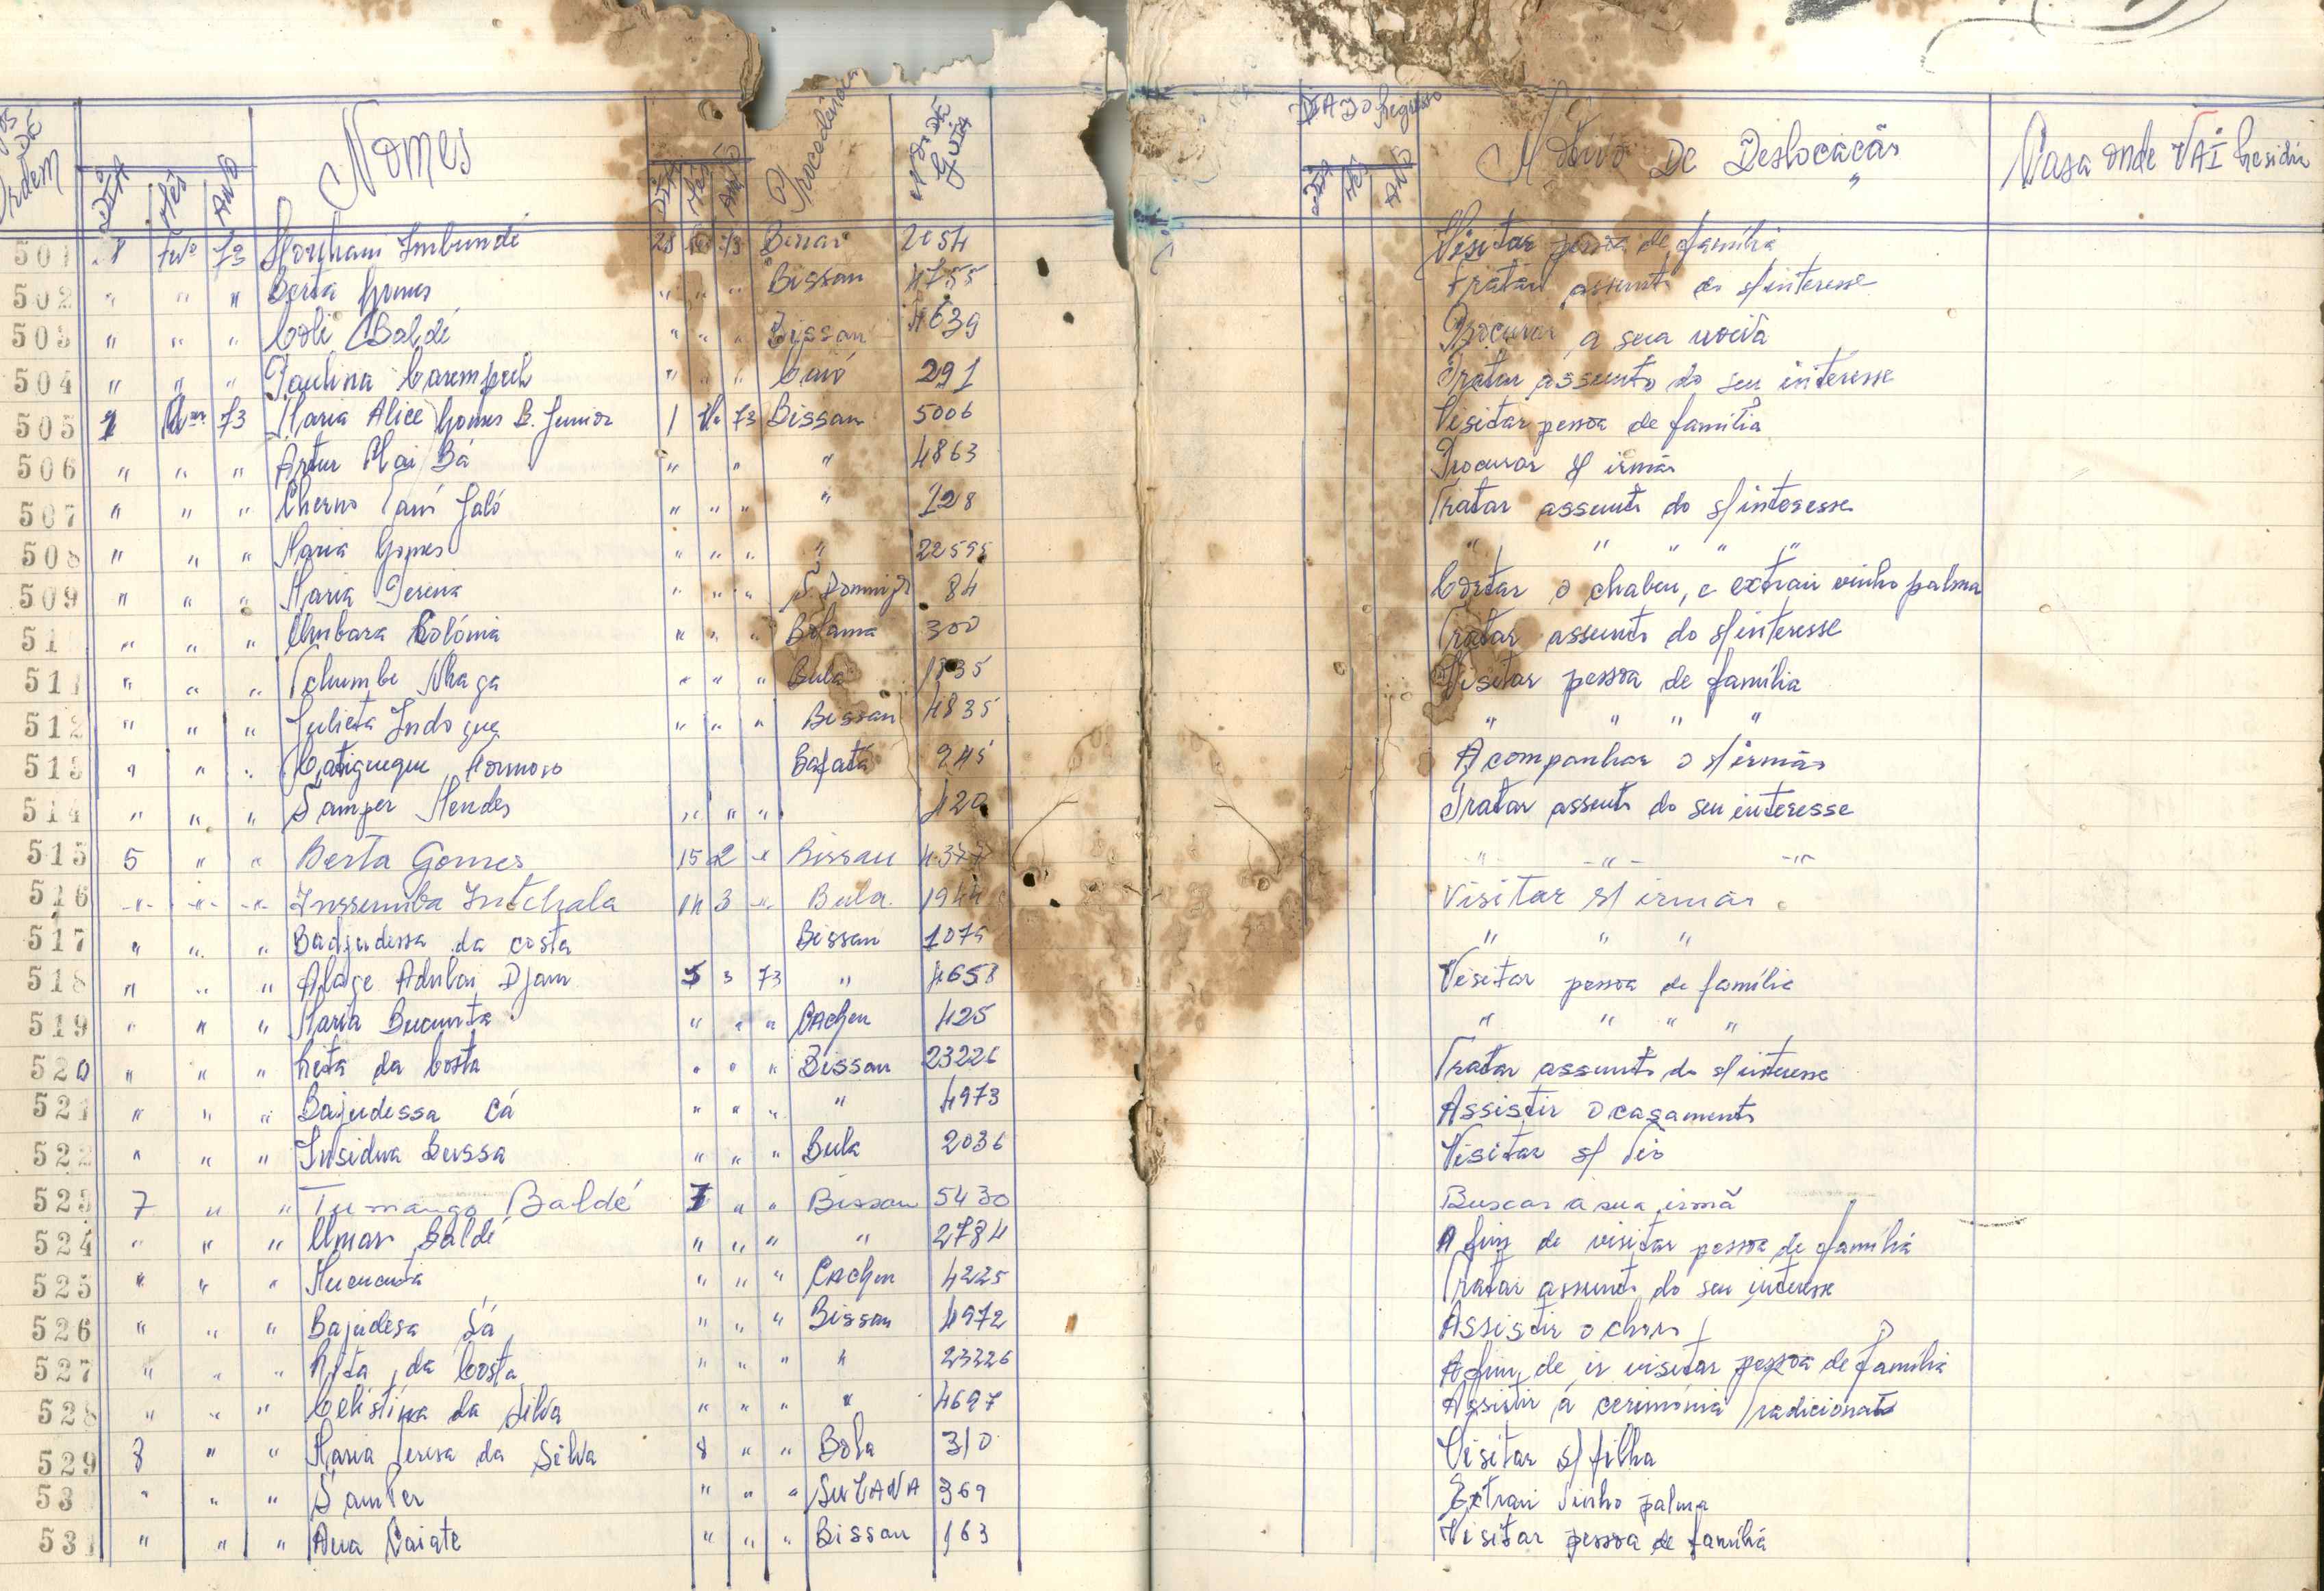 Ordem DE
DIA Mês ANO Nomes DIA Mês ANO Procedência Nº DE Guia DIA DO Regresso DIA Mês ANO Motivo De Deslocação Casa onde VAI Residir
501 73 Imbundé 28 73 Bissau 2054 Visitar pessoa de família
502 " " " Berta Gomes " " " Bissau 4755 Tratar assunto do s/interesse
503 " " " Coli Baldé " " " Bissau 4639 Procurar a sua noiva
504 " " " Paulina " " " Caió 291 Tratar assunto do seu interesse
505 1 73 Maria Alice Gomes B. Junior 1 73 Bissau 5006 Visitar pessoa de família
506 " " " Artur Bá " " " 4863 Procurar s/ irmão
507 " " " Cherno Jaló " " " " 128 Tratar assunto do s/interesse
508 " " " Maria Gomes " " " " 22595 " " " " "
509 " " " Maria " " " S. Domingos 84 Cortar o chabeu, e extrair vinho palma
51 " " " Umbara Colónia " " " Bolama 300 Tratar assunto do s/interesse
511 " " " Tchumbe Nhaga " " " Bula 1935 Visitar pessoa de família
512 " " " Julieta Indogue " " " Bissau 4835 " " " "
513 " " " Formoso Bafatá 245 Acompanhar o s/irmão
514 " " " Samper Mendes " " " 420 Tratar assunto do seu interesse
515 5 " " Berta Gomes 15 2 " Bissau 437 -"- -"- -"-
516 -"- -"- -"- Inssumba Intchala 14 3 -"- Bula 1944 Visitar s/ irmão.
517 " " " Badjudessa da costa Bissau 1075 " " "
518 " " " Alage Adulai Djau 5 3 73 " 4658 Visitar pessoa de família
519 " " " Maria " " " CAcheu 425 " " " "
520 " " " Rita da Costa " " " Bissau 23226 Tratar assunto do s/interesse
521 " " " Bajudessa Cá " " " " 4973 Assistir o casamento
522 " " " Insidua " " " Bula 2036 Visitar s/ Tio
523 7 " " Tumango Baldé 7 " " Bissau 5430 Buscar a sua irmã
524 " " " Umaro Baldé " " " " 2784 A fim de visitar pessoa de família
525 " " " " " " CAcheu 4225 Tratar assunto do seu interesse
526 " " " Bajudesa Sá " " " Bissau 4972 Assistir o choro
527 " " " Rita da Costa " " " " 23226 A fim de ir visitar pessoa de família
528 " " " Celistina da Silva " " " " 4697 Assistir á cerimónia tradicional
529 8 " " Maria Teresa da Silva 8 " " Bola 310 Visitar s/ filha
53 " " " Samper " " " SUZANA 369 Extrair vinho palma
531 " " " Ana " " " Bissau 163 Visitar pessoa de família